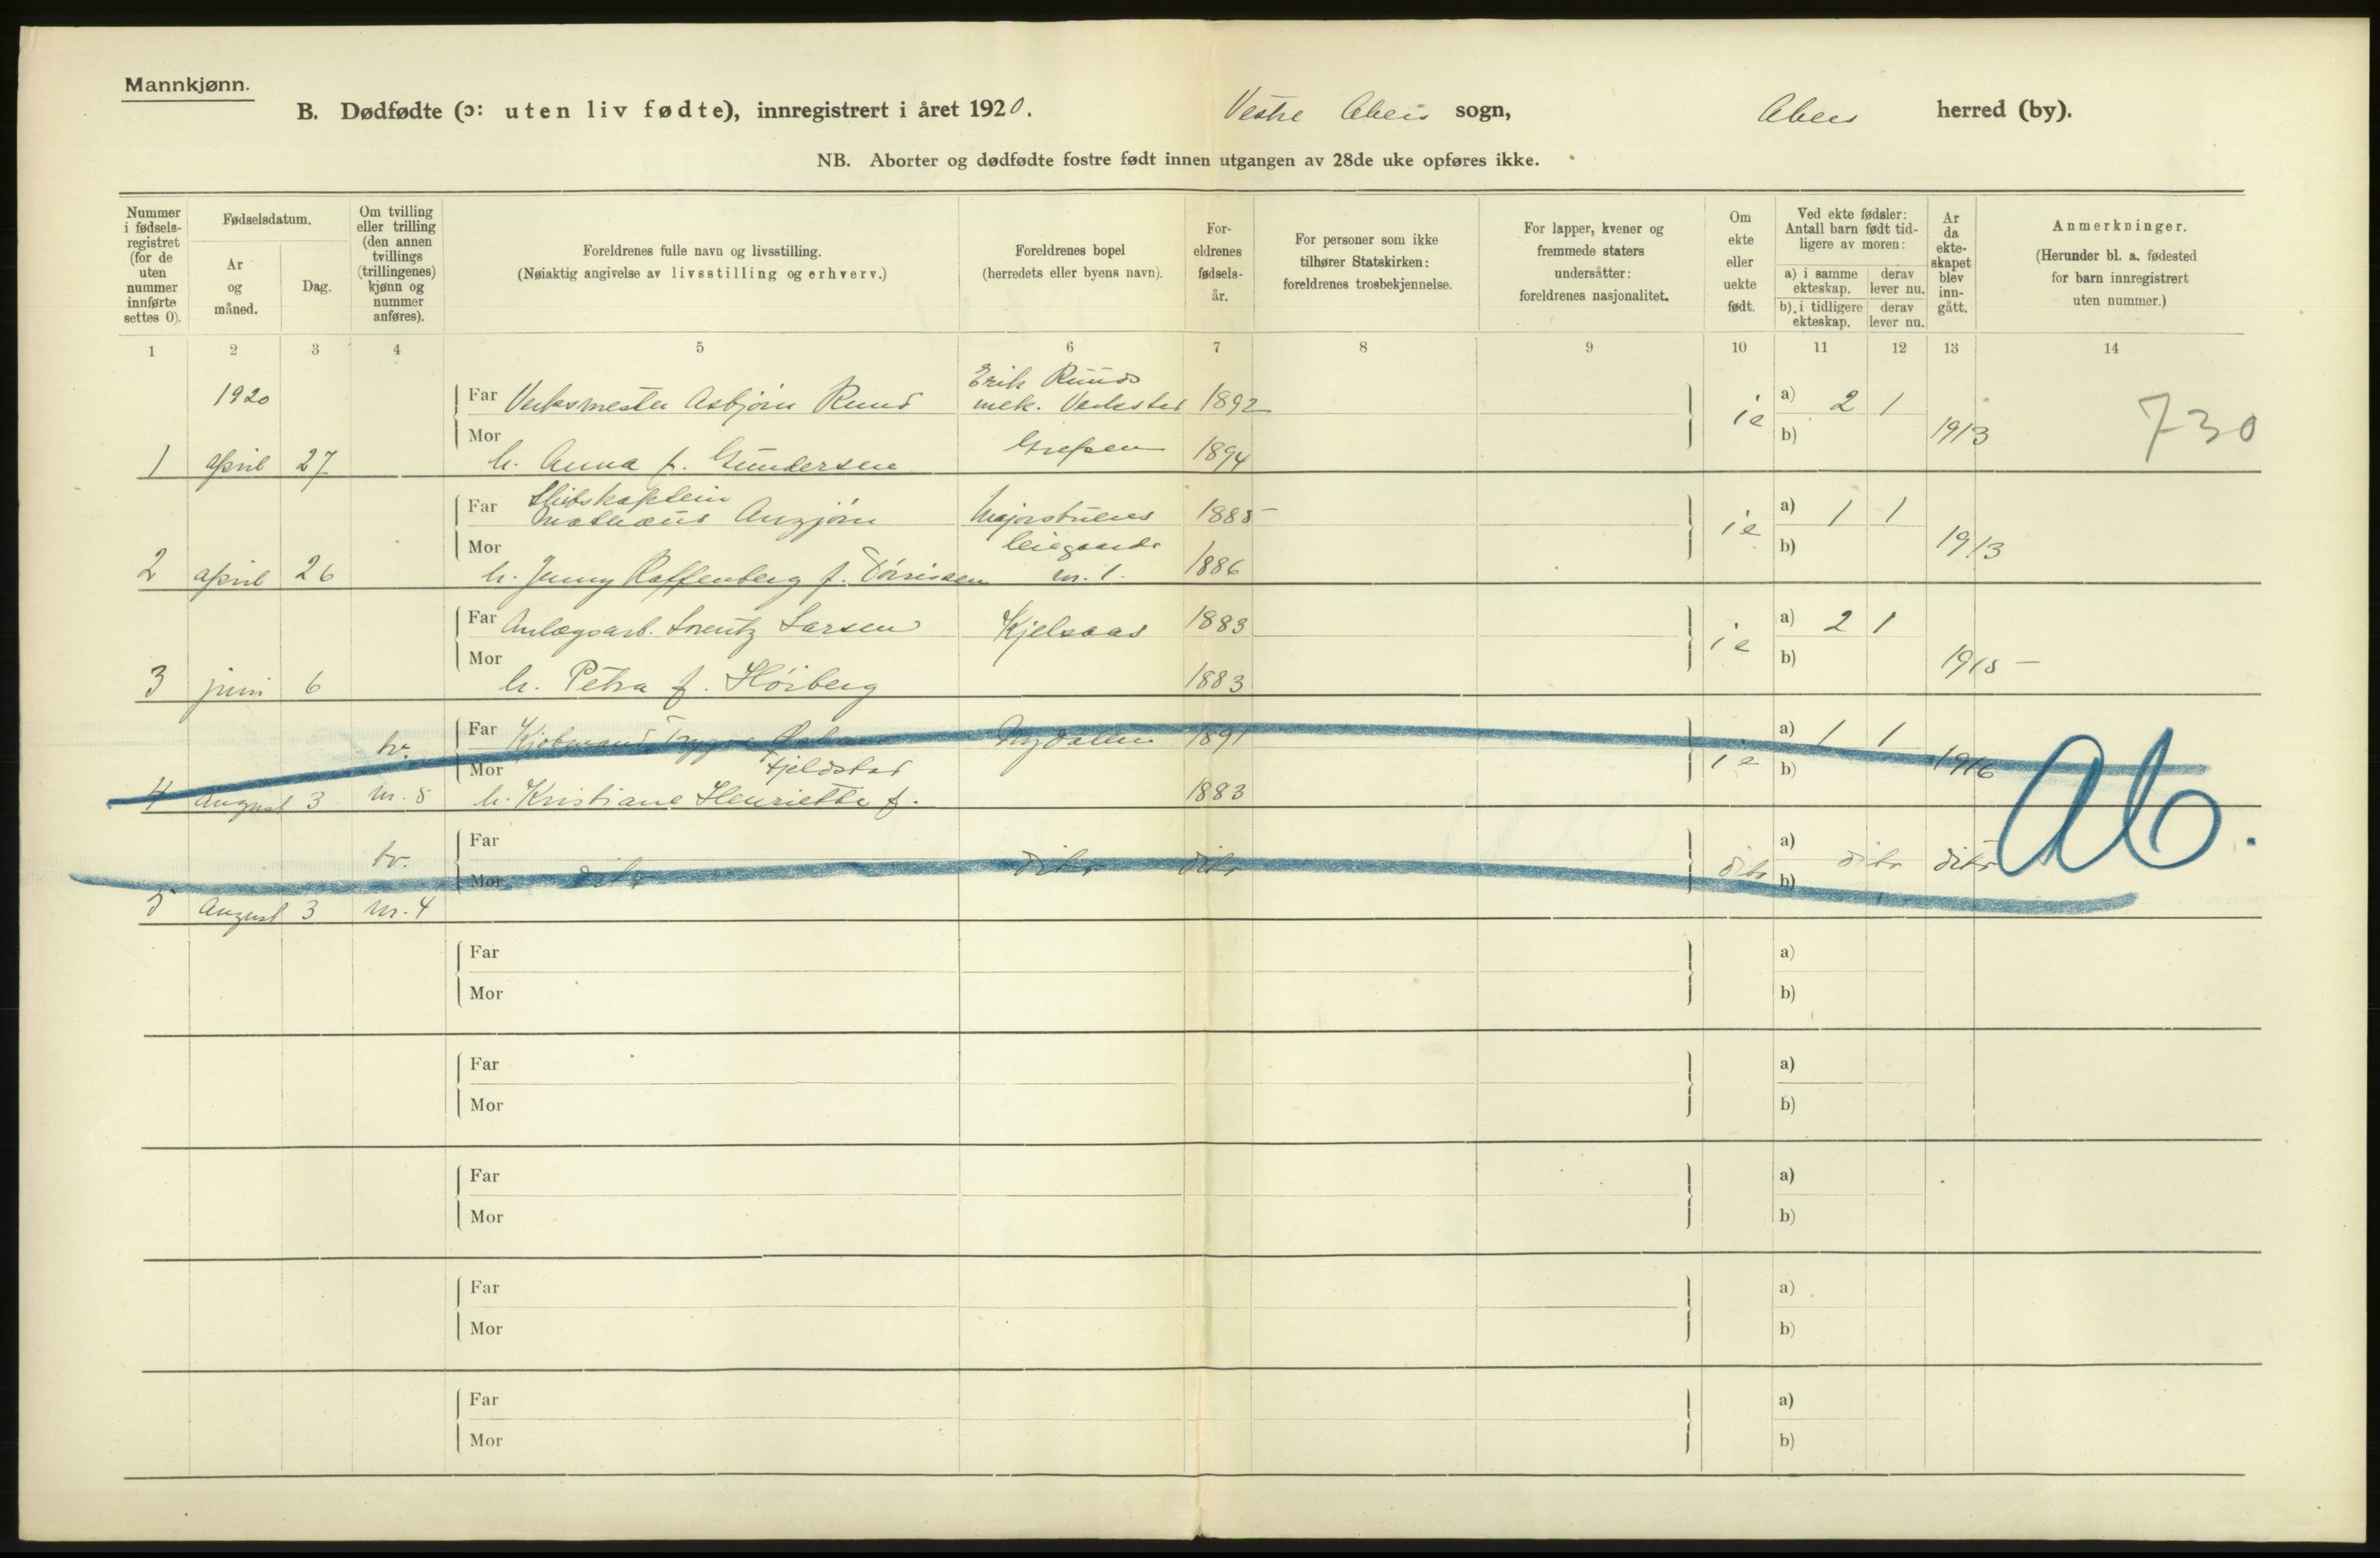 Mannkjønn.
B. Dødfødte (ɔ: uten liv fødte), innregistrert i året 1920. Vestre Akers sogn, Akers herred (by).
NB. Aborter og dødfødte fostre født innen utgangen av 28de uke opføres ikke.
Nummer i fødsels-registret (for de uten nummer innførte settes 0).
Fødselsdatum.
Ar og måned.
Dag.
Om tvilling eller trilling (den annen tvillings (trillingenes) kjønn og nummer anføres).
Foreldrenes fulle navn og livsstilling.
(Nøiaktig angivelse av livsstilling og erhverv.)
Foreldrenes bopel
(herredets eller byens navn).
For-eldrenes fødsels-år.
For personer som ikke tilhører Statskirken: foreldrenes trosbekjennelse.
For lapper, kvener og fremmede staters undersåtter: foreldrenes nasjonalitet.
Om ekte eller uekte født.
Ved ekte fødsler: Antall barn født tid-ligere av moren:
a) i samme ekteskap.
derav lever nu.
b) i tidligere ekteskap.
derav lever nu.
Ar da ekte-skapet blev inn-gått.
Anmerkninger.
(Herunder bl. a. fødested for barn innregistrert uten nummer.)
1 2 3 4 5 6 7 8 9 10 11 12 13 14
1920 Far Verksmester Asbjørn Ruud Erik Ruuds mek. Verksted 1892 ie a) 2 1 730
1 april 27 Mor h. Anna f. Gundersen Grefsen 1894 b) 1913
Far Skibskaptein Mathæus Anzjøn Majorstuens 1885 ie a) 1 1
2 april 26 Mor h. Jenny Raffenberg f. Tönnisen leiegaarde nr. 1. 1886 b) 1913
Far Anlægsarb. Lorentz Larsen Kjelsaas 1883 ie a) 2 1
3 juni 6 Mor h. Petra f. Høiberg 1883 b) 1915
tv. Far Kjøbmand Trygve Nydalen 1891 ie a) 1 1
4 August 3 nr. 5 Mor h. Kristiane Henriette f. Fjeldstad 1883 b) 1916
Ab.
tv. Far a)
5 August 3 nr. 4 Mor dito dito dito dito b) dito dito
Far a)
Mor b)
Far a)
Mor b)
Far a)
Mor b)
Far a)
Mor b)
Far a)
Mor b)